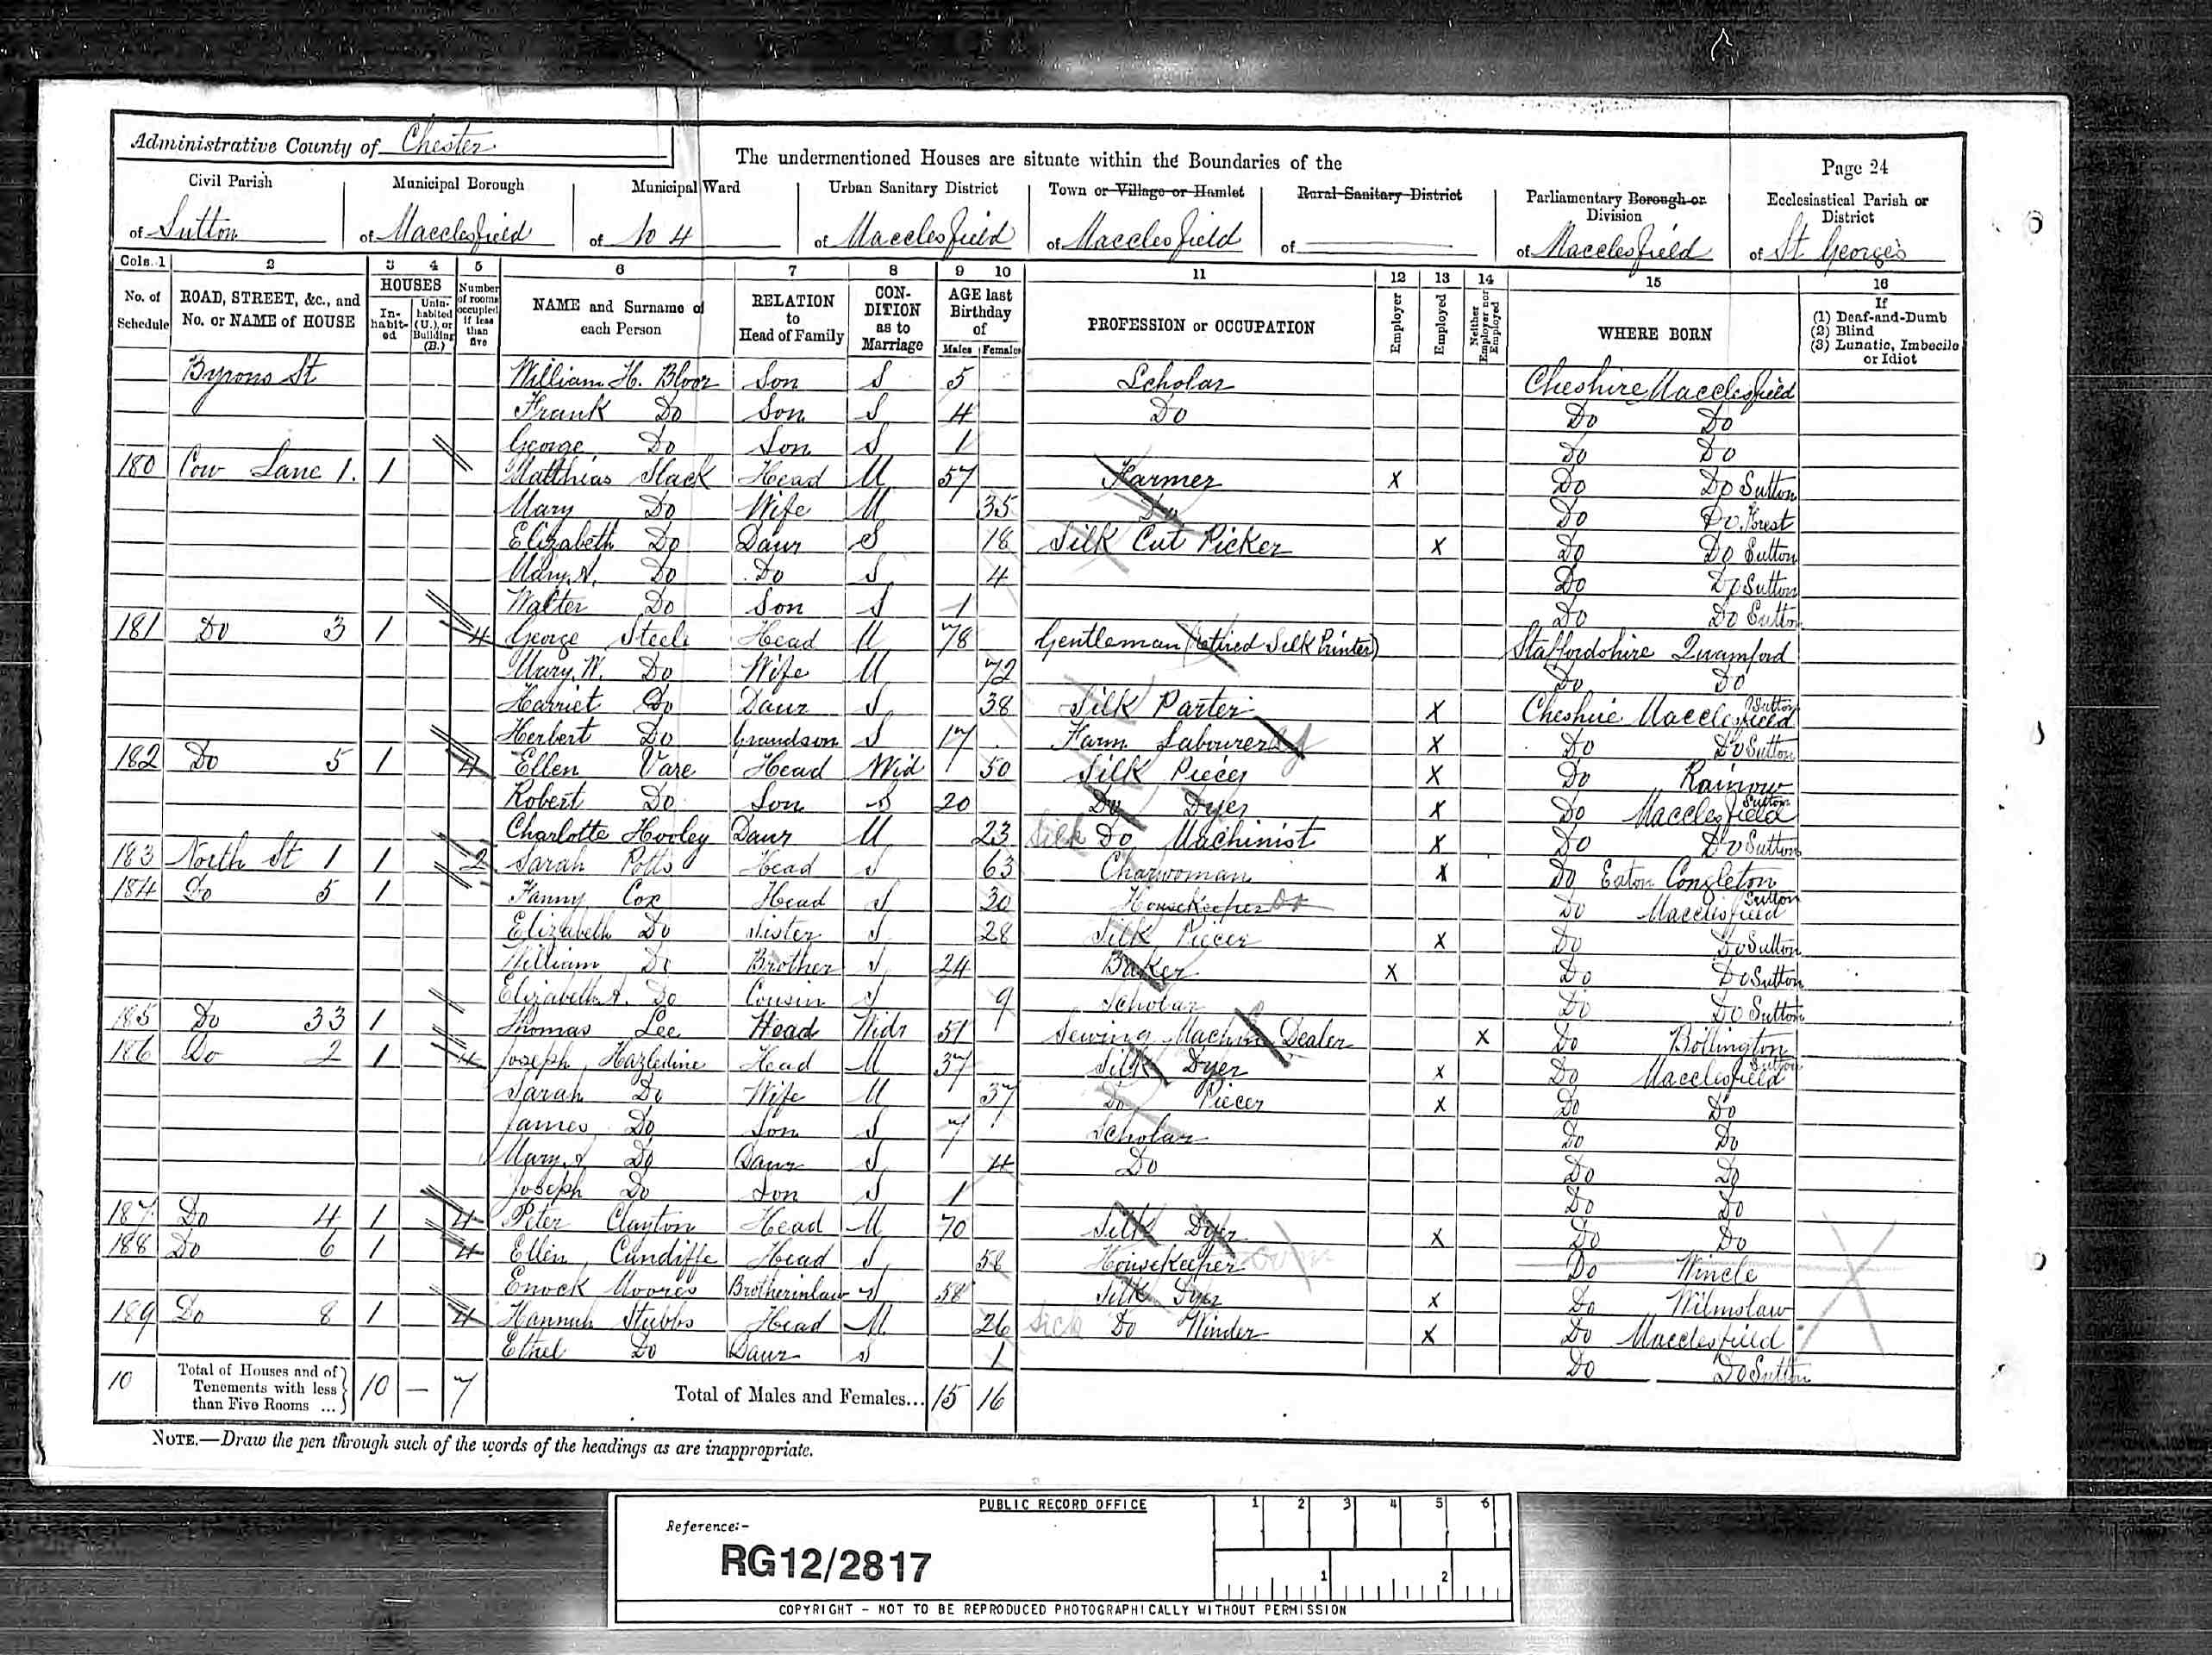 Administrative County of Chester
The undermentioned Houses are situate within the Boundaries of the
Page 24
Civil Parish of Sutton
Municipal Borough of Macclesfield
Municipal Ward of No 4
Urban Sanitary District of Macclesfield
Town or Village or Hamlet of Macclesfield
Rural Sanitary District of
Parliamentary Borough or Division of Macclesfield
Ecclesiastical Parish or District of St George's
Cols. 1 2 3 4 5 6 7 8 9 10 11 12 13 14 15 16
No. of Schedule
ROAD, STREET, &c., and No. or NAME of HOUSE
HOUSES
In-habit-ed
Unin-habited (U.), or Building (B.)
Number of rooms occupied if less than five
NAME and Surname of each Person
RELATION to Head of Family
CON-DITION as to Marriage
AGE last Birthday of
Males Females
PROFESSION or OCCUPATION
Employer
Employed
Neither Employer nor Employed
WHERE BORN
If
(1) Deaf-and-Dumb
(2) Blind
(3) Lunatic, Imbecile or Idiot
Byrons St William H. Bloor Son S 5 Scholar Cheshire Macclesfield
Frank Do Son S 4 Do Do Do
George Do Son S 1 Do Do
180 Cow Lane 1. 1 Matthias Slack Head M 57 Farmer X Do Do Sutton
Mary Do Wife M 35 Do Do Do Forest
Elizabeth Do Daur S 18 Silk Cut Picker X Do Do Sutton
Mary A. Do Do S 4 Do Do Sutton
Walter Do Son S 1 Do Do Sutton
181 Do 3 1 4 George Steele Head M 78 Gentleman (retired Silk Printer) Staffordshire Quamford
Mary W. Do Wife M 72 Do Do
Harriet Do Daur S 38 Silk Parter X Cheshire Macclesfield Sutton
Herbert Do Grandson S 17 Farm Labourer X Do Do Sutton
182 Do 5 1 4 Ellen Vare Head Wid 50 Silk Piecer X Do Rainow
Robert Do Son S 20 Do Dyer X Do Macclesfield Sutton
Charlotte Hooley Daur M 23 Silk Do Machinist X Do Do Sutton
183 North St 1 1 2 Sarah Potts Head S 63 Charwoman X Do Eaton Congleton
184 Do 5 1 Fanny Cox Head S 30 Housekeeper Do Do Macclesfield Sutton
Elizabeth Do Sister S 28 Silk Piecer X Do Do Sutton
William Do Brother S 24 Baker X Do Do Sutton
Elizabeth A. Do Cousin S 9 Scholar Do Do Sutton
185 Do 33 1 Thomas Lee Head Widr 51 Sewing Machine Dealer X Do Bollington
186 Do 2 1 4 Joseph Hazledine Head M 37 Silk Dyer X Do Macclesfield Sutton
Sarah Do Wife M 37 Do Piecer X Do Do
James Do Son S 7 Scholar Do Do
Mary A Do Daur S 4 Do Do Do
Joseph Do Son S 1 Do Do
187 Do 4 1 4 Peter Clayton Head M 70 Silk Dyer X Do Do
188 Do 6 1 4 Ellen Cundiffe Head S 58 Housekeeper Do Wincle
Enock Moores Brotherinlaw S 58 Silk Dyer X Do Wilmslaw
189 Do 8 1 4 Hannah Stubbs Head M 26 Silk Do Winder X Do Macclesfield
Ethel Do Daur S 1 Do Do Sutton
10 Total of Houses and of Tenements with less than Five Rooms ... 10 — 7 Total of Males and Females... 15 16
NOTE.—Draw the pen through such of the words of the headings as are inappropriate.
PUBLIC RECORD OFFICE
1 2 3 4 5 6
Reference:-
RG12/2817
1 2
COPYRIGHT - NOT TO BE REPRODUCED PHOTOGRAPHICALLY WITHOUT PERMISSION